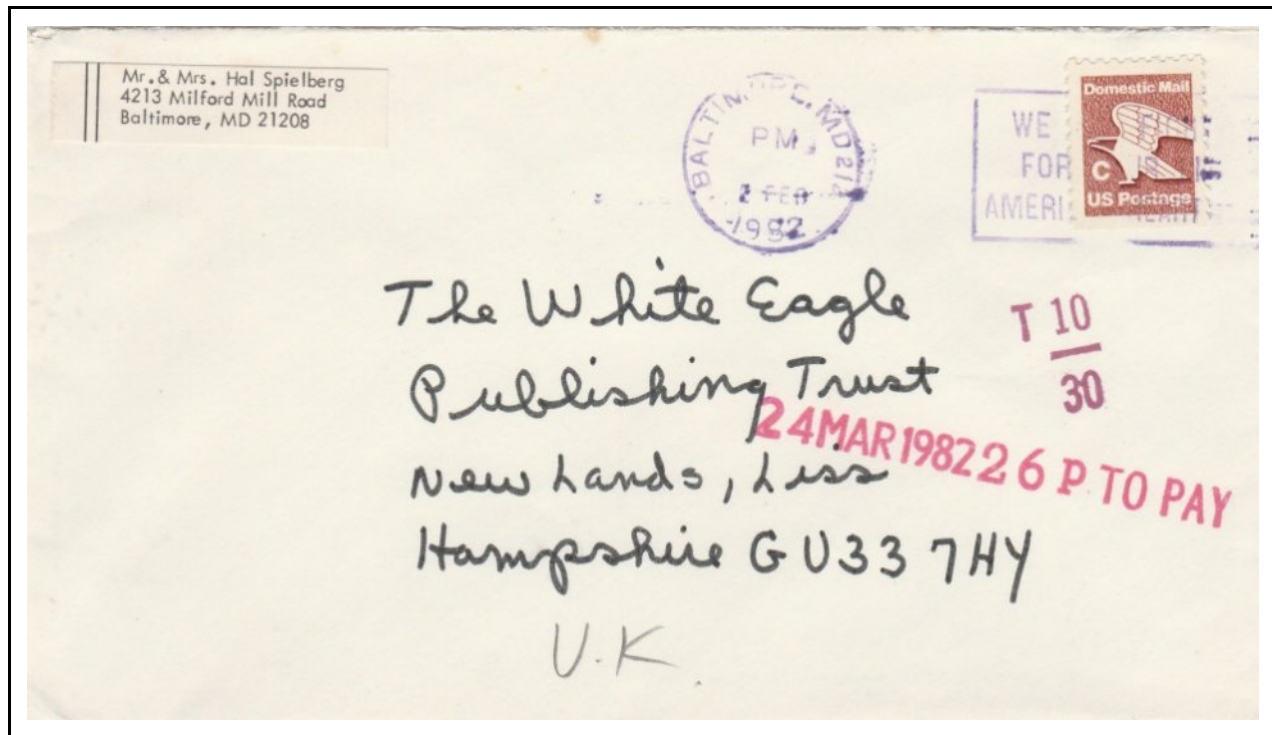 Mr. & Mrs. Hal Spielberg
4213 Milford Mill Road
Baltimore, MD 21208
BALTIMORE, MD 212
PM
2 FEB
1982
WE
FOR
AMERI
Domestic Mail
C
US Postage
The White Eagle
Publishing Trust
New Lands, Liss
Hampshire GU33 7HY
U.K.
T 10
30
24MAR1982 26 P TO PAY